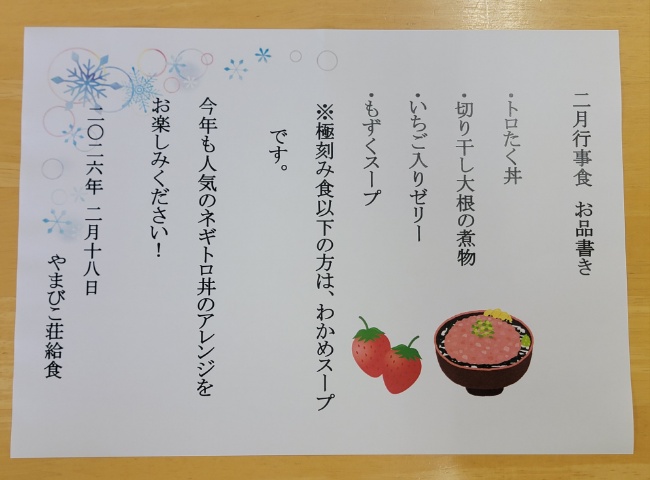 二月行事食　お品書き
・トロたく丼
・切り干し大根の煮物
・いちご入りゼリー
・もずくスープ
※極刻み食以下の方は、わかめスープ
です。
今年も人気のネギトロ丼のアレンジを
お楽しみください！
二〇二六年 二月十八日
やまびこ荘給食